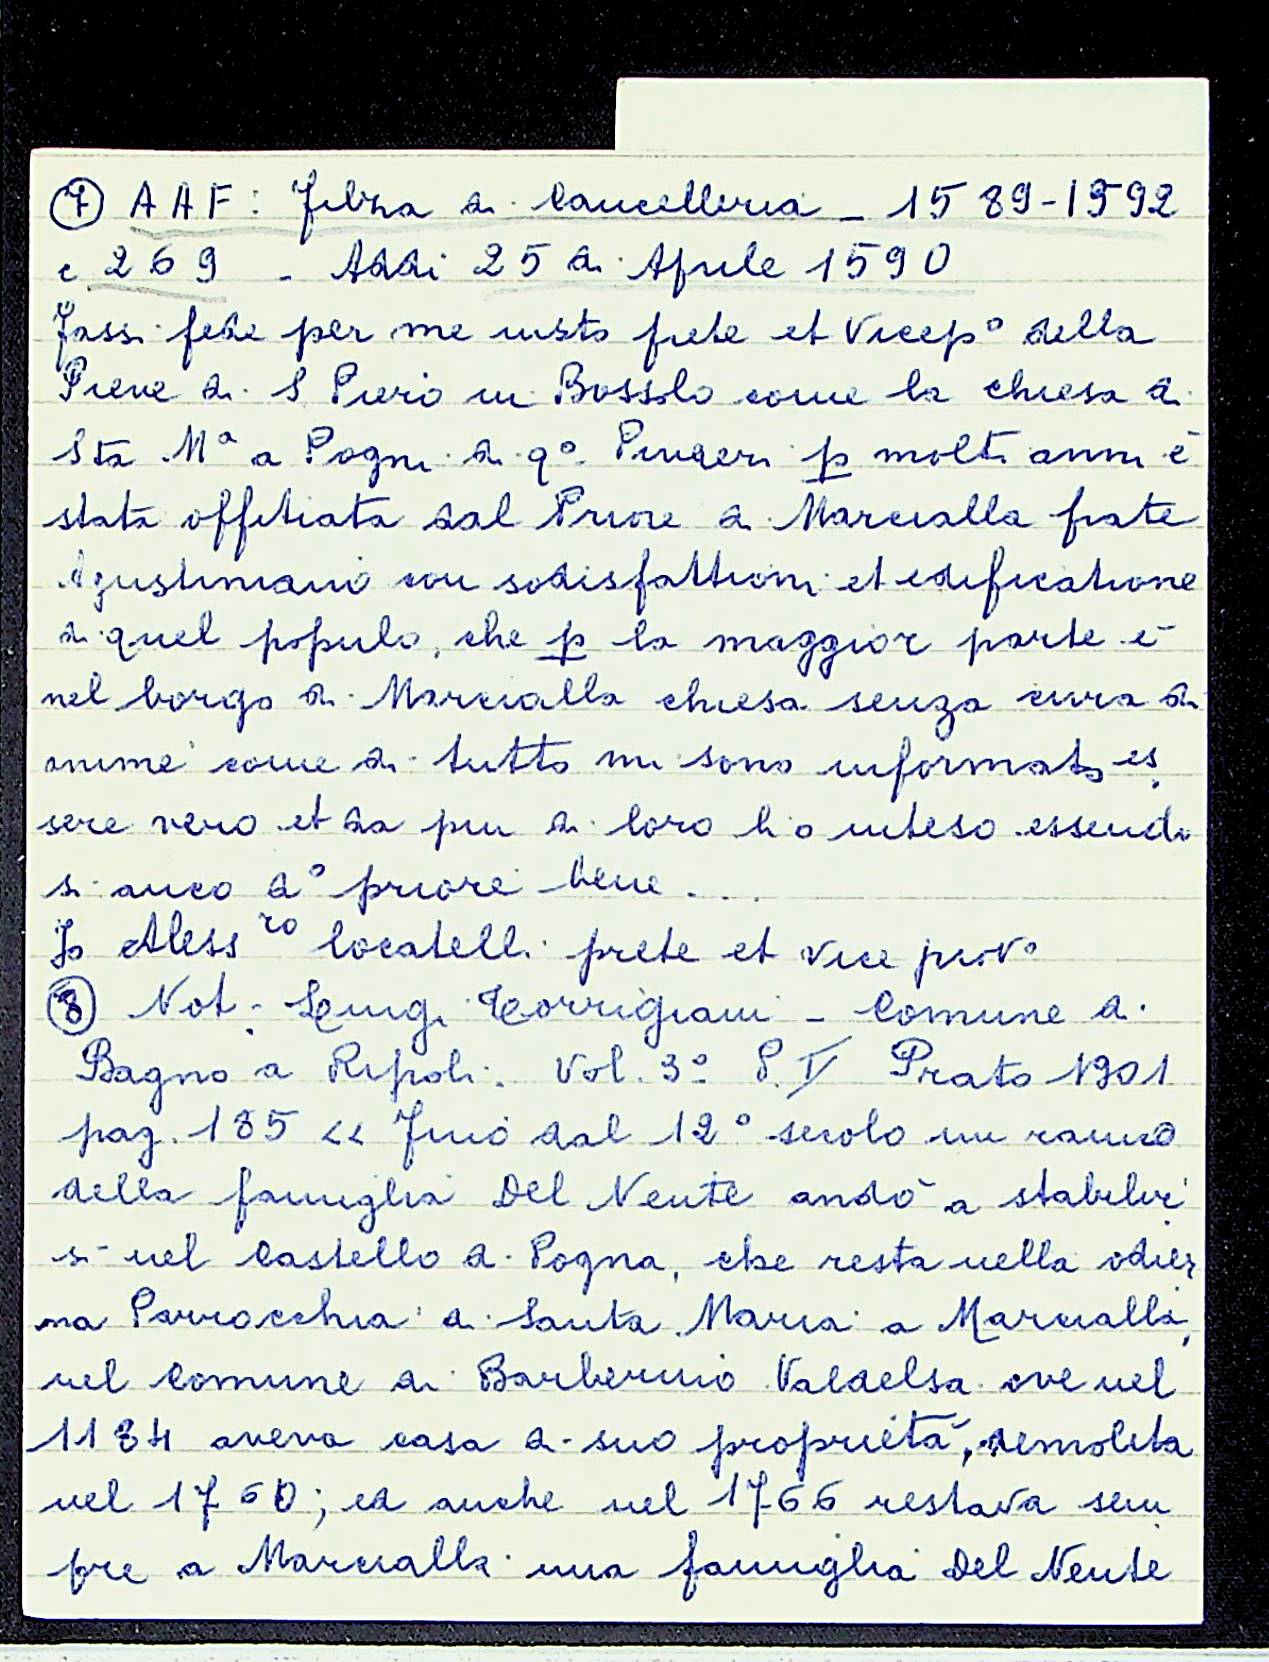 ⑦ AAF: Filza di Cancelleria - 1589-1592
c 269 - Addi 25 di Aprile 1590
Fassi fede per me infto prete et Vicepo della
Pieve di S Piero in Bossolo come la chiesa di
Sta Ma a Pogni di qo Piviere p molti anni è
stata offitiata dal Priore di Marcialla frate
Agustiniano con sodisfattioni et edificatione
di quel populo, che p la maggior parte è
nel borgo di Marcialla chiesa senza cura di
anime come di tutto mi sono informato es
sere vero et da piu di loro ho inteso essendo
si anco do priore bene...
Io Alessro Locatelli prete et vice piovo
⑧ Not. Luigi Torrigiani - Comune di
Bagno a Ripoli. Vol. 3o P. V Prato 1901
pag. 185 << Fino dal 12o secolo un ramo
della famiglia Del Nente andò a stabilir
si nel Castello di Pogna, che resta nella odier
na Parrocchia di Santa Maria a Marcialla,
nel Comune di Barberino Valdelsa ove nel
1184 aveva casa di suo proprietà, demolita
nel 1760; ed anche nel 1766 restava sem
pre a Marcialla una famiglia Del Nente